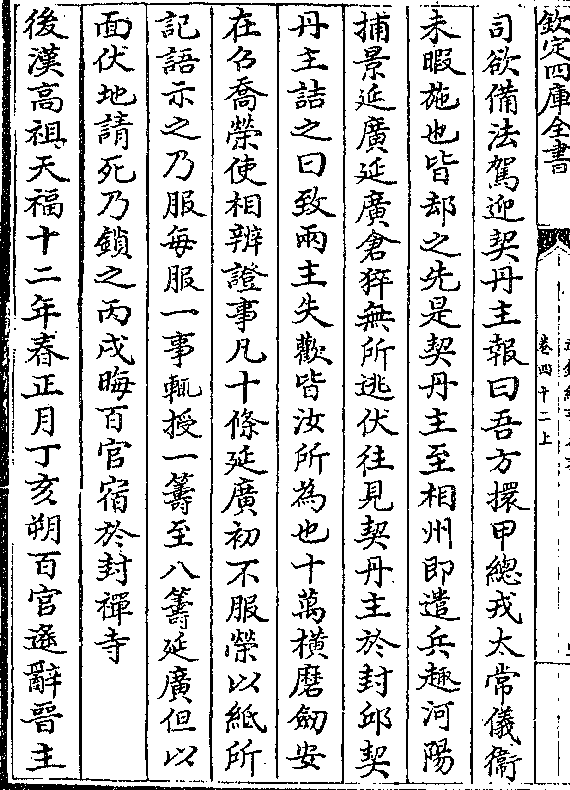 欽定四庫全書
卷四十二上
司欲備法駕迎契丹主報曰吾方擐甲總戎太常儀衞
未暇施也皆却之先是契丹主至相州即遣兵趣河陽
捕景延廣延廣倉猝無所逃伏往見契丹主於封邱契
丹主詰之曰致兩主失歡皆汝所為也十萬橫磨劒安
在召喬榮使相辨證事凡十條延廣初不服榮以紙所
記語示之乃服每服一事輒授一籌至八籌延廣但以
面伏地請死乃鎖之丙戌晦百官宿於封禪寺
後漢高祖天福十二年春正月丁亥朔百官遙辭晉主